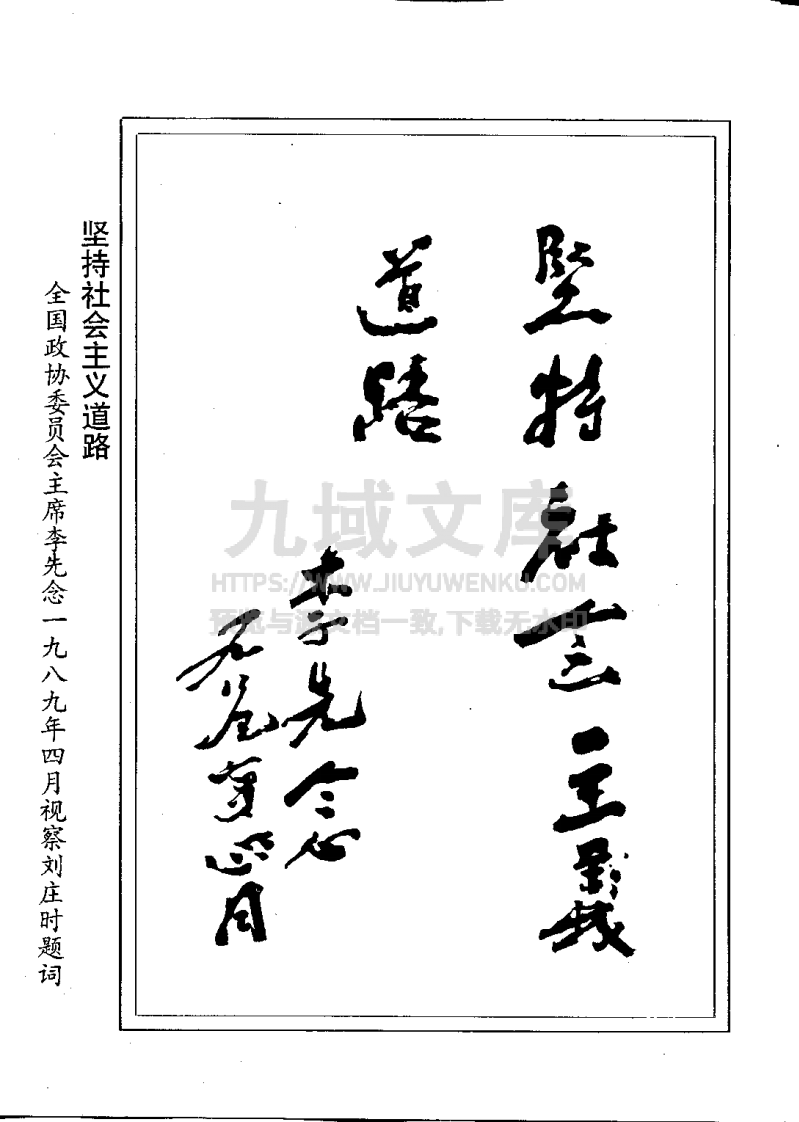 坚持社会主義
道路
李先念
一九八九年四月
坚持社会主义道路
全国政协委员会主席李先念一九八九年四月视察刘庄时题词
九域文库
HTTPS://WWW.JIUYUWENKU.COM
预览与源文档一致,下载无水印